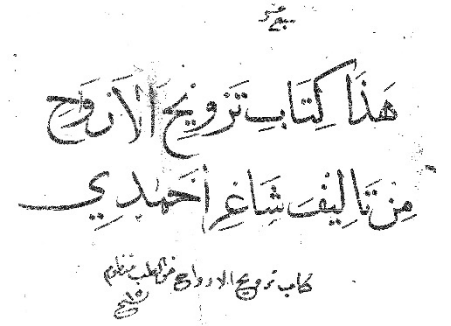 هَذَا كِتَابِ تَرْوِيحِ الاَرْوَاحِ
مِنْ تَالِيفِ شَاعِرْ اَحْمَدِي
كتاب ترويح الارواح في الطب منظوم